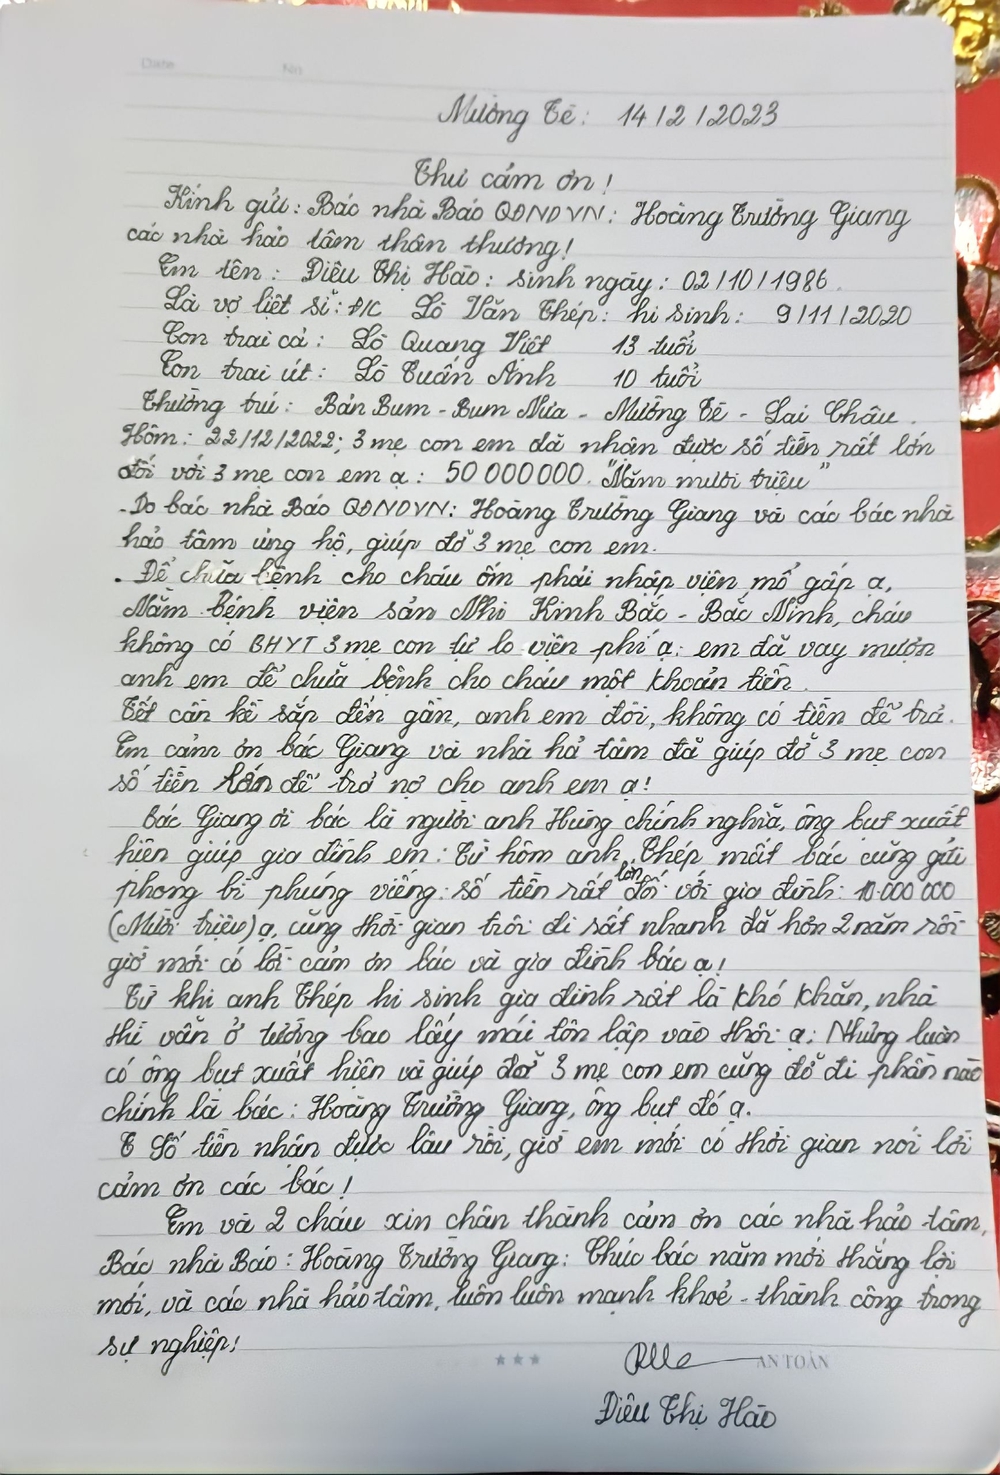 Date No
Mường Tè: 14/2/2023
Thư cảm ơn!
Kính gửi: Bác nhà Báo QĐNDVN: Hoàng Trường Giang
các nhà hảo tâm thân thương!
Em tên: Diêu Thị Hào: sinh ngày: 02/10/1986.
Là vợ liệt sĩ: Đ/C Lò Văn Thép: hi sinh: 9/11/2020
Con trai cả: Lò Quang Việt 13 tuổi
Con trai út: Lò Tuấn Anh 10 tuổi
Thường trú: Bản Bum - Bum Nưa - Mường Tè - Lai Châu.
Hôm: 22/12/2022; 3 mẹ con em đã nhận được số tiền rất lớn
đối với 3 mẹ con em ạ: 50 000 000. "Năm mươi triệu"
- Do bác nhà Báo QĐNDVN: Hoàng Trường Giang và các bác nhà
hảo tâm ủng hộ, giúp đỡ 3 mẹ con em.
. Để chữa bệnh cho cháu ốm phải nhập viện mổ gấp ạ,
Nằm bệnh viện sản Nhi Kinh Bắc - Bắc Ninh, cháu
không có BHYT 3 mẹ con tự lo viện phí ạ: em đã vay mượn
anh em để chữa bệnh cho cháu một khoản tiền.
Tết cận kề sắp đến gần, anh em đòi, không có tiền để trả.
Em cảm ơn bác Giang và nhà hả tâm đã giúp đỡ 3 mẹ con
số tiền lớn để trả nợ cho anh em ạ!
Bác Giang ơi bác là người anh Hùng chính nghĩa, ông bụt xuất
hiện giúp gia đình em: Từ hôm anh Thép mất bác cũng gửi
phong bì phúng viếng: số tiền rất lớn đối với gia đình: 10.000 000
(Mười triệu) ạ, cũng thời gian trôi đi rất nhanh đã hơn 2 năm rồi
giờ mới có lời cảm ơn bác và gia đình bác ạ!
Từ khi anh Thép hi sinh gia đình rất là khó khăn, nhà
thì vẫn ở tường bao lấy mái tôn lập vào thôi ạ: Nhưng luôn
có ông bụt xuất hiện và giúp đỡ 3 mẹ con em cũng đỡ đi phần nào
chính là bác: Hoàng Trường Giang, ông bụt đó ạ.
T Số tiền nhận được lâu rồi, giờ em mới có thời gian nói lời
cảm ơn các bác!
Em và 2 cháu xin chân thành cảm ơn các nhà hảo tâm,
Bác nhà Báo: Hoàng Trường Giang: Chúc bác năm mới thắng lợi
mới, và các nhà hảo tâm, luôn luôn mạnh khoẻ - thành công trong
sự nghiệp!
AN TOÀN
Diêu Thị Hào